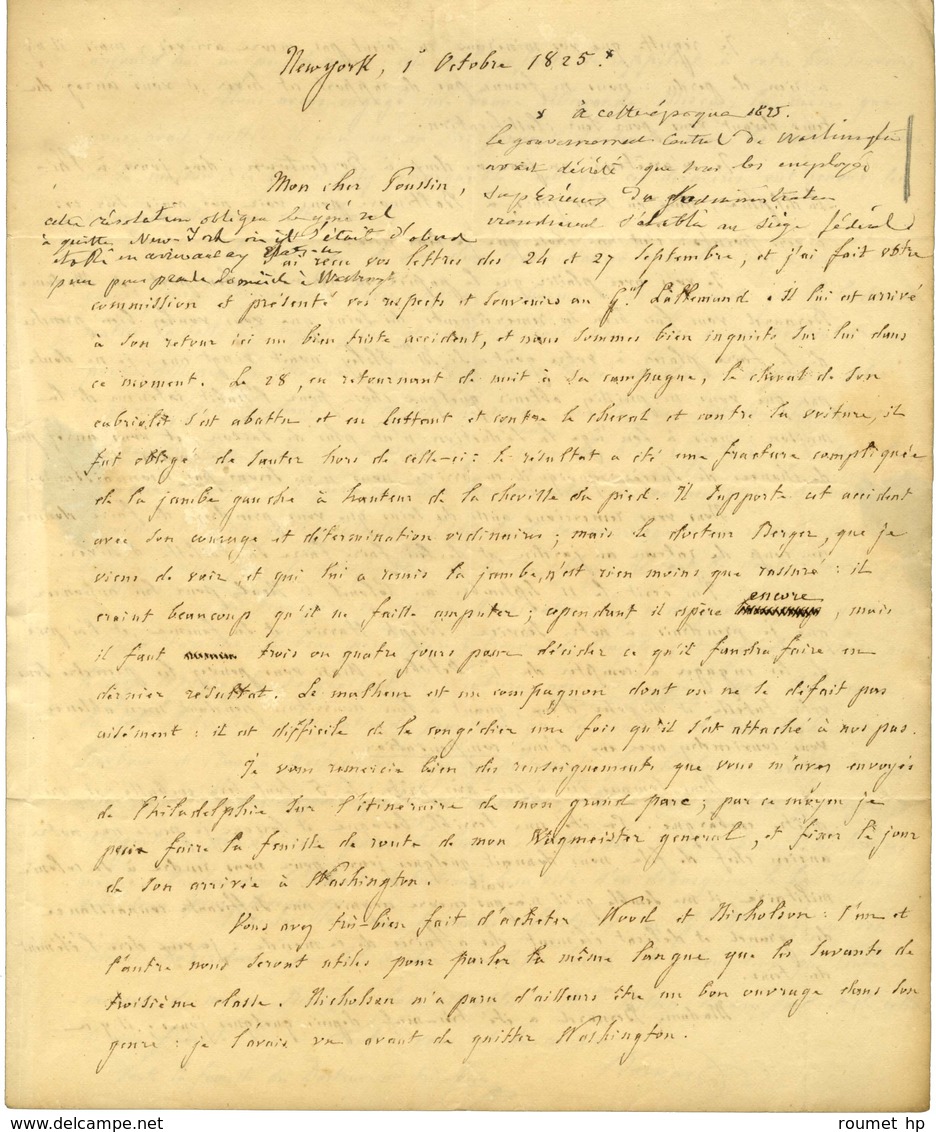 Newyork, 1er Octobre 1825. x
x à cette époque 1825.
le gouvernement Central de Washington
avait décrété que tous les employés
Supérieurs de l'administration
viendraient s'établir au siège fédéral
Mon cher Poussin,
cette résolution obligea le général
à quitter New-York où il s'était d'abord
pour prendre domicile à Washington
J'ai reçu vos lettres des 24 et 27 Septembre, et j'ai fait votre
commission et présenté vos respects et souvenirs au Gal Lallemand. Il lui est arrivé
à son retour ici un bien triste accident, et nous sommes bien inquiets sur lui dans
ce moment. Le 28, en retournant de nuit à sa campagne, le cheval de son
cabriolet s'est abattu et en luttant et contre le cheval et contre la voiture, il
fut obligé de sauter hors de celle-ci : le résultat a été une fracture compliquée
de la jambe gauche à hauteur de la cheville du pied. Il supporte cet accident
avec son courage et détermination ordinaires ; mais le docteur Berger, que je
viens de voir, et qui lui a remis la jambe, n'est rien moins que rassuré : il
craint beaucoup qu'il ne faille amputer ; cependant il espère encore, mais
il faut trois ou quatre jours pour décider ce qu'il faudra faire en
dernier résultat. Le malheur est un compagnon dont on ne se défait pas
aisément : il est difficile de le congédier une fois qu'il s'est attaché à nos pas.
Je vous remercie bien des renseignements que vous m'avez envoyés
de Philadelphie sur l'itinéraire de mon grand parc ; par ce moyen je
peux faire la feuille de route de mon Wagmeister general, et fixer le jour
de son arrivée à Washington.
Vous avez très-bien fait d'acheter Wood et Nicholson : l'un et
l'autre nous seront utiles pour parler la même langue que les savants de
troisième classe. Nicholson m'a paru d'ailleurs être un bon ouvrage dans son
genre : je l'avais vu avant de quitter Washington.
roumet hp